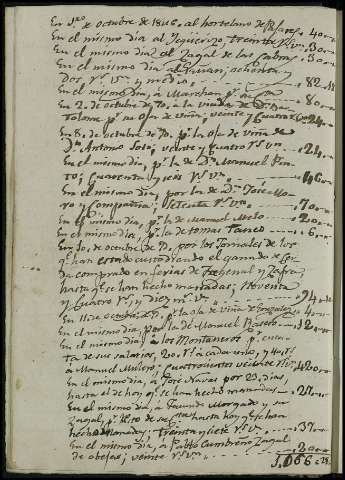 En 1.º de octubre de 1846, al hortelano de 40
En el mismo dia al Yegüerizo, treinta rs. vn. 30
En el mismo dia al Zagal de las Cabras, 30
En el mismo dia al ochenta y
dos, rs. vn. y medio, 82.
En el mismo dia, á Marchan pr. 80
En 2. de octubre de id, á la viuda de D.n
pr. su oja de viña, veinte y cuatro rs. 24
En 8, de octubre de id, pr. la oja de viña de
D.n Antonio Soto, veinte y cuatro rs vn 24
En el mismo dia, pr. la de D.n Manuel Pin-
to, cuarenta y seis rs vn 46
En el mismo dia, por las de D.n José Ma-
ro y Compañia, setenta rs vn 70
En el mismo dia, pr. la de Manuel Melo 20
En el mismo dia, pr. la de tomas Ceneco 6
En 10, de octubre de id, por los jornales de los
qe. han estado custodiando el ganado de Cer-
da comprado en ferias de Frejenal y Zafra,
hasta qe. se han hecho manadas; noventa
y cuatro rs, y diez ms. vn. 94
En 11 de octubre de id, pr. la oja de viña de Gonzales 40
En el mismo dia, por la de Manuel 12
En el mismo dia, á los Montaneros pr. cuen-
ta de sus salarios, 20. rs á cada uno, y 40. rs
á Manuel Millero. cuatrocientos veinte rs vn 420
En el mismo dia, á José Navas por 23, dias,
hasta el de hoy, qe. se han hecho manadas
En el mismo dia, á Facundo Morgado y su
Zagal, pr. resto de su hasta hoy qe. se han
hecho manadas; treinta y siete rs vn 37
En el mismo dia, á Pablo Cumbreño Zagal
de obejas; veinte rs vn 20